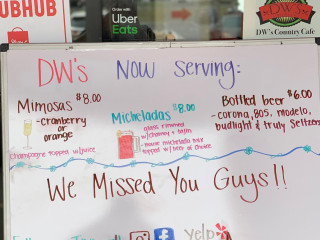 UBHUB
Order with
Uber
Eats
DW's
DW's Country Cafe
DW's Now Serving:
Mimosas $8.00
- cranberry
or
orange
champagne topped w/ juice
Micheladas $8.00
glass rimmed
w/ chamoy + tajin
- house michelada mix
topped w/ beer of choice
Bottled beer $6.00
- corona, 805, modelo,
budlight & truly Seltzers
We Missed You Guys!!
Yelp